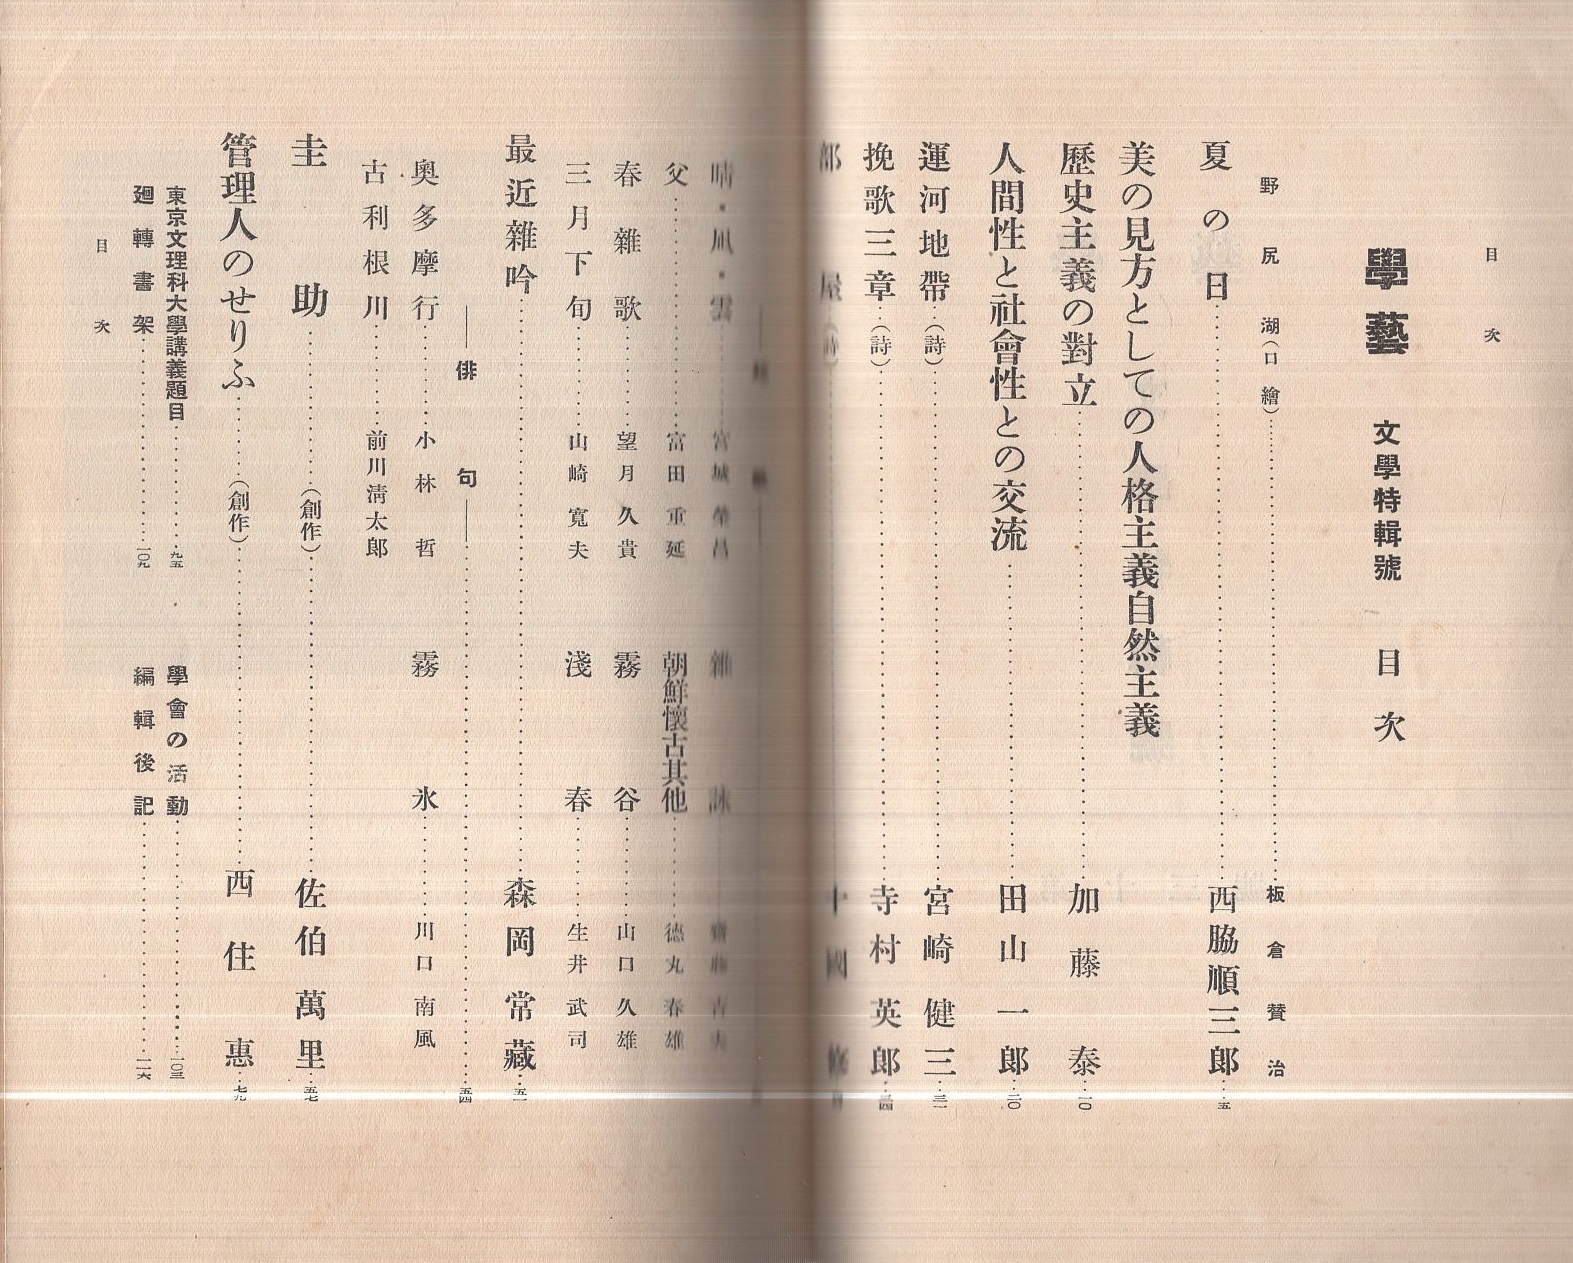 目次
學藝 文學特輯號 目次
野尻湖(口繪)……板倉賛治
夏の日……西脇順三郎……五
美の見方としての人格主義自然主義
歷史主義の對立……加藤泰……一〇
人間性と社會性との交流……田山一郎……二〇
運河地帶(詩)……宮崎健三……三一
挽歌三章(詩)……寺村英郎……三四
部屋(詩)……十國修
晴・凪・雲……宮城榮昌
雜詠……齋藤吉夫
父……富田重延
朝鮮懷古其他……德丸春雄
春雜歌……望月久貴
霧谷……山口久雄
三月下旬……山崎寬夫
淺春……生井武司
最近雜吟……森岡常藏……五一
——俳句——……五四
奧多摩行……小林哲
霧氷……川口南風
古利根川……前川淸太郎
圭助……(創作)……佐伯萬里……五七
管理人のせりふ……(創作)……西住惠……七九
東京文理科大學講義題目……九五
學會の活動……一〇三
廻轉書架……一〇九
編輯後記……一一六
目次